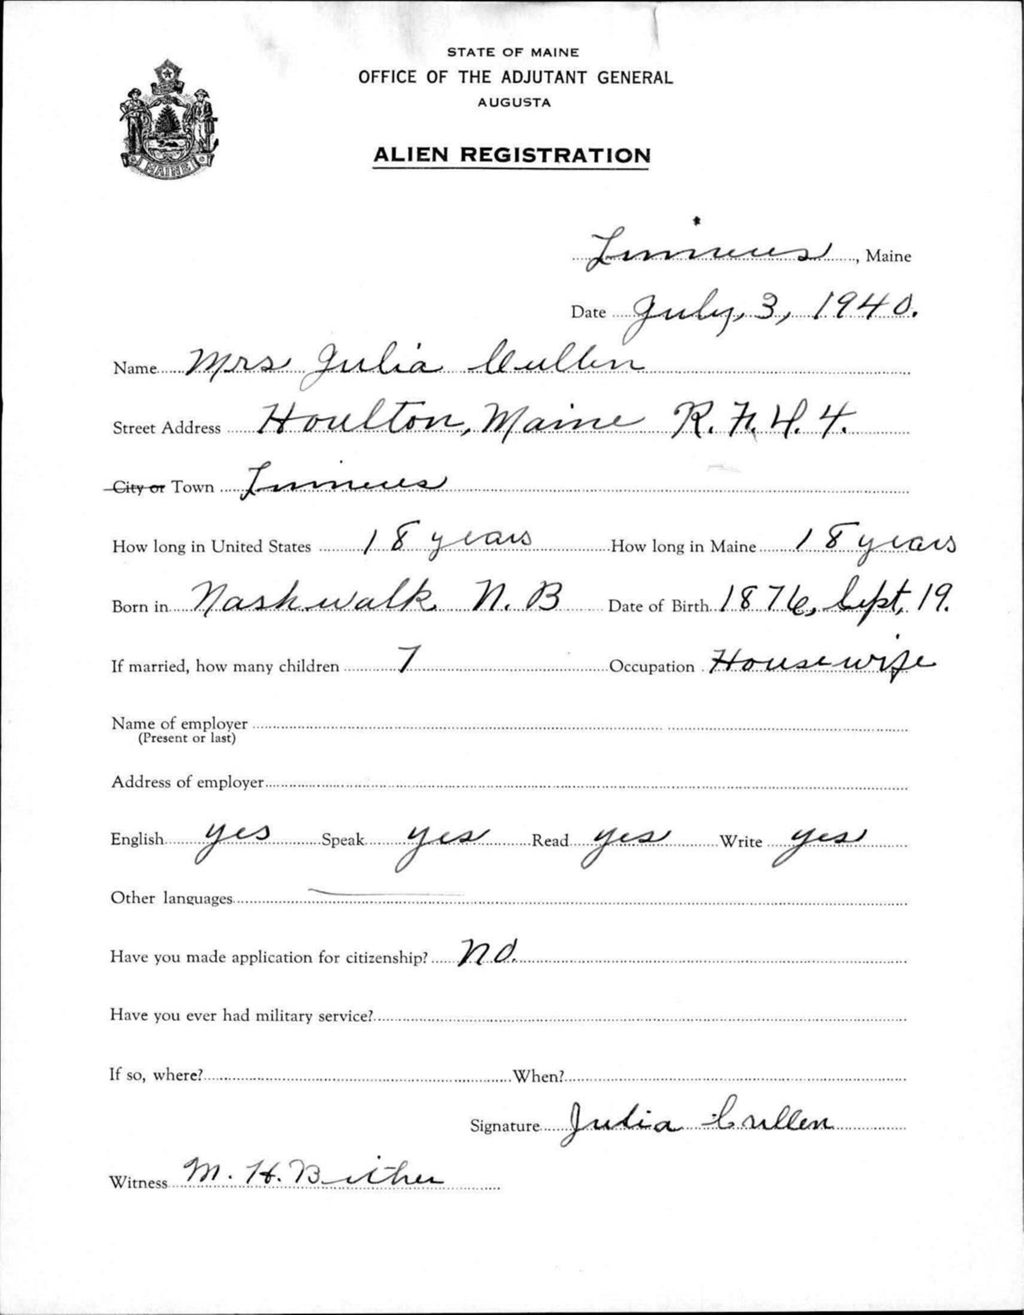 STATE OF MAINE
OFFICE OF THE ADJUTANT GENERAL
AUGUSTA
ALIEN REGISTRATION
MAINE
Linneus, Maine
Date July, 3, 1940.
Name Mrs Julia Cullen
Street Address Houlton, Maine R.F.D. 4.
City or Town Linneus
How long in United States 18 years How long in Maine 18 years
Born in Nashwalk N.B Date of Birth 1876, Sept, 19.
If married, how many children 7 Occupation Housewife
Name of employer
(Present or last)
Address of employer
English yes Speak yes Read yes Write yes
Other languages
Have you made application for citizenship? No.
Have you ever had military service?
If so, where? When?
Signature Julia Cullen
Witness M. H. Bither